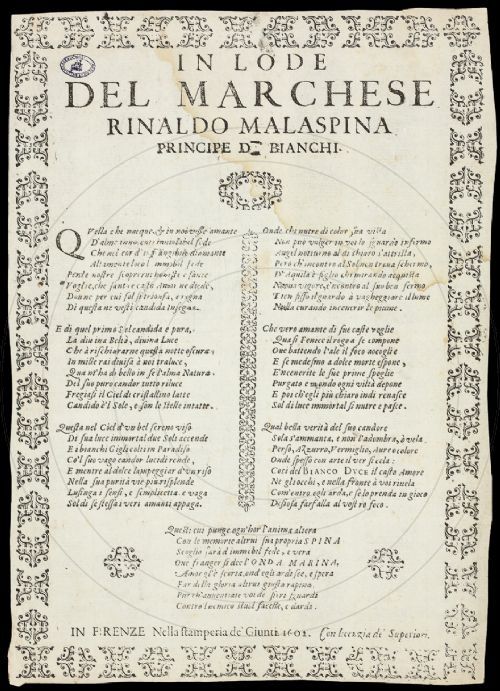 IN LODE
DEL MARCHESE
RINALDO MALASPINA
PRINCIPE D BIANCHI.
QVella che nacque, & in noi visse amante
D'alme
Alt
Pente nostre scoprir honeste e sante
Voglie, che sant' e casto Amor ne diede,
Donne per cui sol si trionfa, e regna
Di questa ne vestì candida insegna.
E di quel primo Sol candida e pura,
La diuina Beltà, diuina Luce
Che à rischiarar ne questa notte oscura
In mille rai diuisa à noi traluce,
Qua n'ha di bello in se l'alma Natura
Del suo puro candor tutto riluce
Fregiasi il Ciel di cristallino latte
Candido è'l Sole, e son le Stelle intatte.
Questa nel Ciel d'vn bel sereno viso
Di sua luce immortal due Sole accende
E bianchi Gigli colti in Paradiso
Col suo vago candor lucidi rende,
E mentre al dolce lampeggiar d'vn riso
Nella sua purità vie più risplende
Lusinga i sensi, e semplicetta e vaga
Sol di se stessa i veri amanti appaga.
Onde chi nutre di color sua vista
Non può volger in voi lo sguardo infermo
Augel notturno al dì
Però
D'Aquila è figlio che mirando acquista
Nuouo vigore, e'ncontro al suo ben fermo
Tien fisso il guardo à vagheggiar il lume
Nulla curando incenerir le piume.
Che vero amante di sue caste voglie
Quasi Fenice il rogo se compone
Oue battendo l'ale il foco accoglie
E se medesmo à dolce morte espone,
E'ncenerite le sue prime spoglie
Purgato e mondo ogni viltà depone
E poi ch'egli più chiaro indi renasce
Sol di luce immortal si nutre e pasce.
Qual bella verità del suo candore
Sola s'ammanta, e non l'adombra, ò vela
Perso, Azzurro, Vermiglio, Aureo colore
Onde spesso con arte il ver si cela:
Così del BIANCO DVCE il casto Amore
Ne gl'occhi, e nella fronte à voi riuela
Com'entro egli arda, e se lo prenda in gioco
Disiosa farfalla al vostro foco.
Questi cui punge ogn'hor l'anima altera
Con le memorie altrui sua propria SPINA
Scoglio sarà d'immobil fede, e vera
Oue franger si dee l'ONDA MARINA,
Amor gl'è scorta, ond'egli ardisce, e spera
Far della gloria altrui giusta rapina
Pur ch'auuentiate voi de spirti sguardi
Contro l'nemico
IN FIRENZE Nella stamperia de' Giunti 1602. Con licenzia de' Superiori.